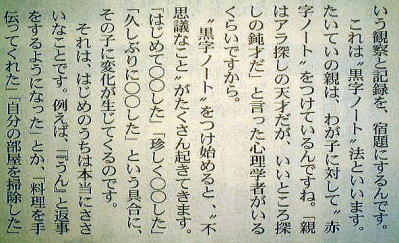 いう観察と記録を、宿題にするんです。
これは〝黒字ノート〟法といいます。
たいていの親は、わが子に対して〝赤
字ノート〟をつけているんですね。「親
はアラ探しの天才だが、いいところ探
しの鈍才だ」と言った心理学者がいる
くらいですから。
〝黒字ノート〟をつけ始めると、〝不
思議なこと〟がたくさん起きてきます。
「はじめて〇〇した」「珍しく〇〇した」
「久しぶりに〇〇した」という具合に、
その子に変化が生じてくるのです。
それは、はじめのうちは本当にささ
いなことです。例えば、「『うん』と返事
をするようになった」とか、「料理を手
伝ってくれた」「自分の部屋を掃除した」